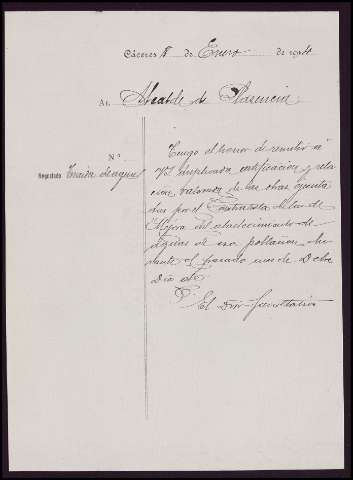 Cáceres 8 de Enero de
Al Alcalde de Plasencia
Nº
Negociado Traida de aguas
Tengo el honor de remitir á
V.S. duplicada certificación y rela
cion valorada de las obras ejecuta
das por el Contratista de las de
Mejora del abastecimiento de
aguas de esa poblacion, du
rante el pasado mes de Dcbre
Dios etc
El Dor Facultativo